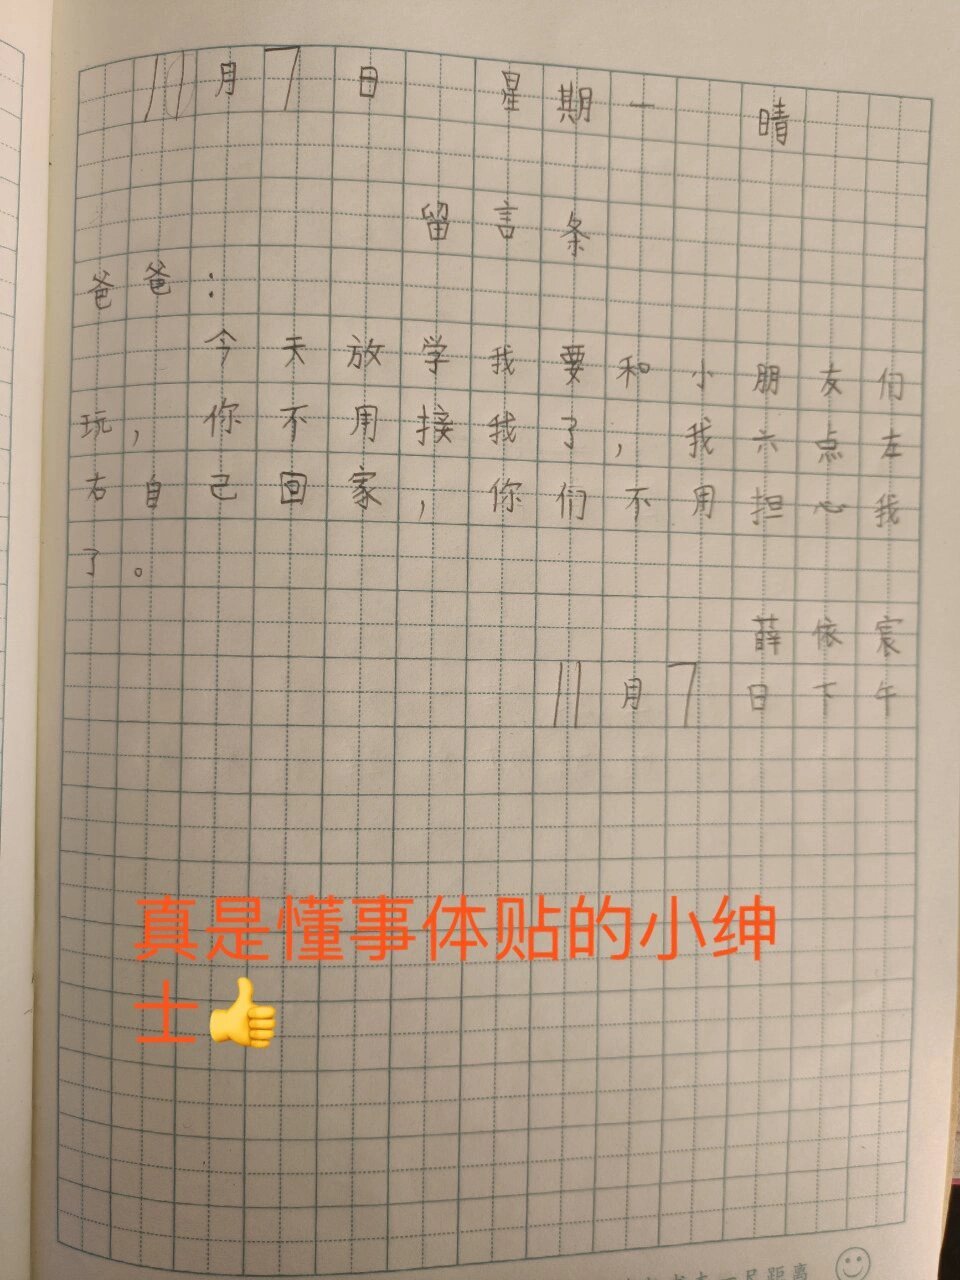 11月7日 星期一 晴
留言条
爸爸：
今天放学我要和小朋友们
玩，你不用接我了，我六点左
右自己回家，你们不用担心我
了。
薛依宸
11月7日下午
真是懂事体贴的小绅
士👍
一尺距离